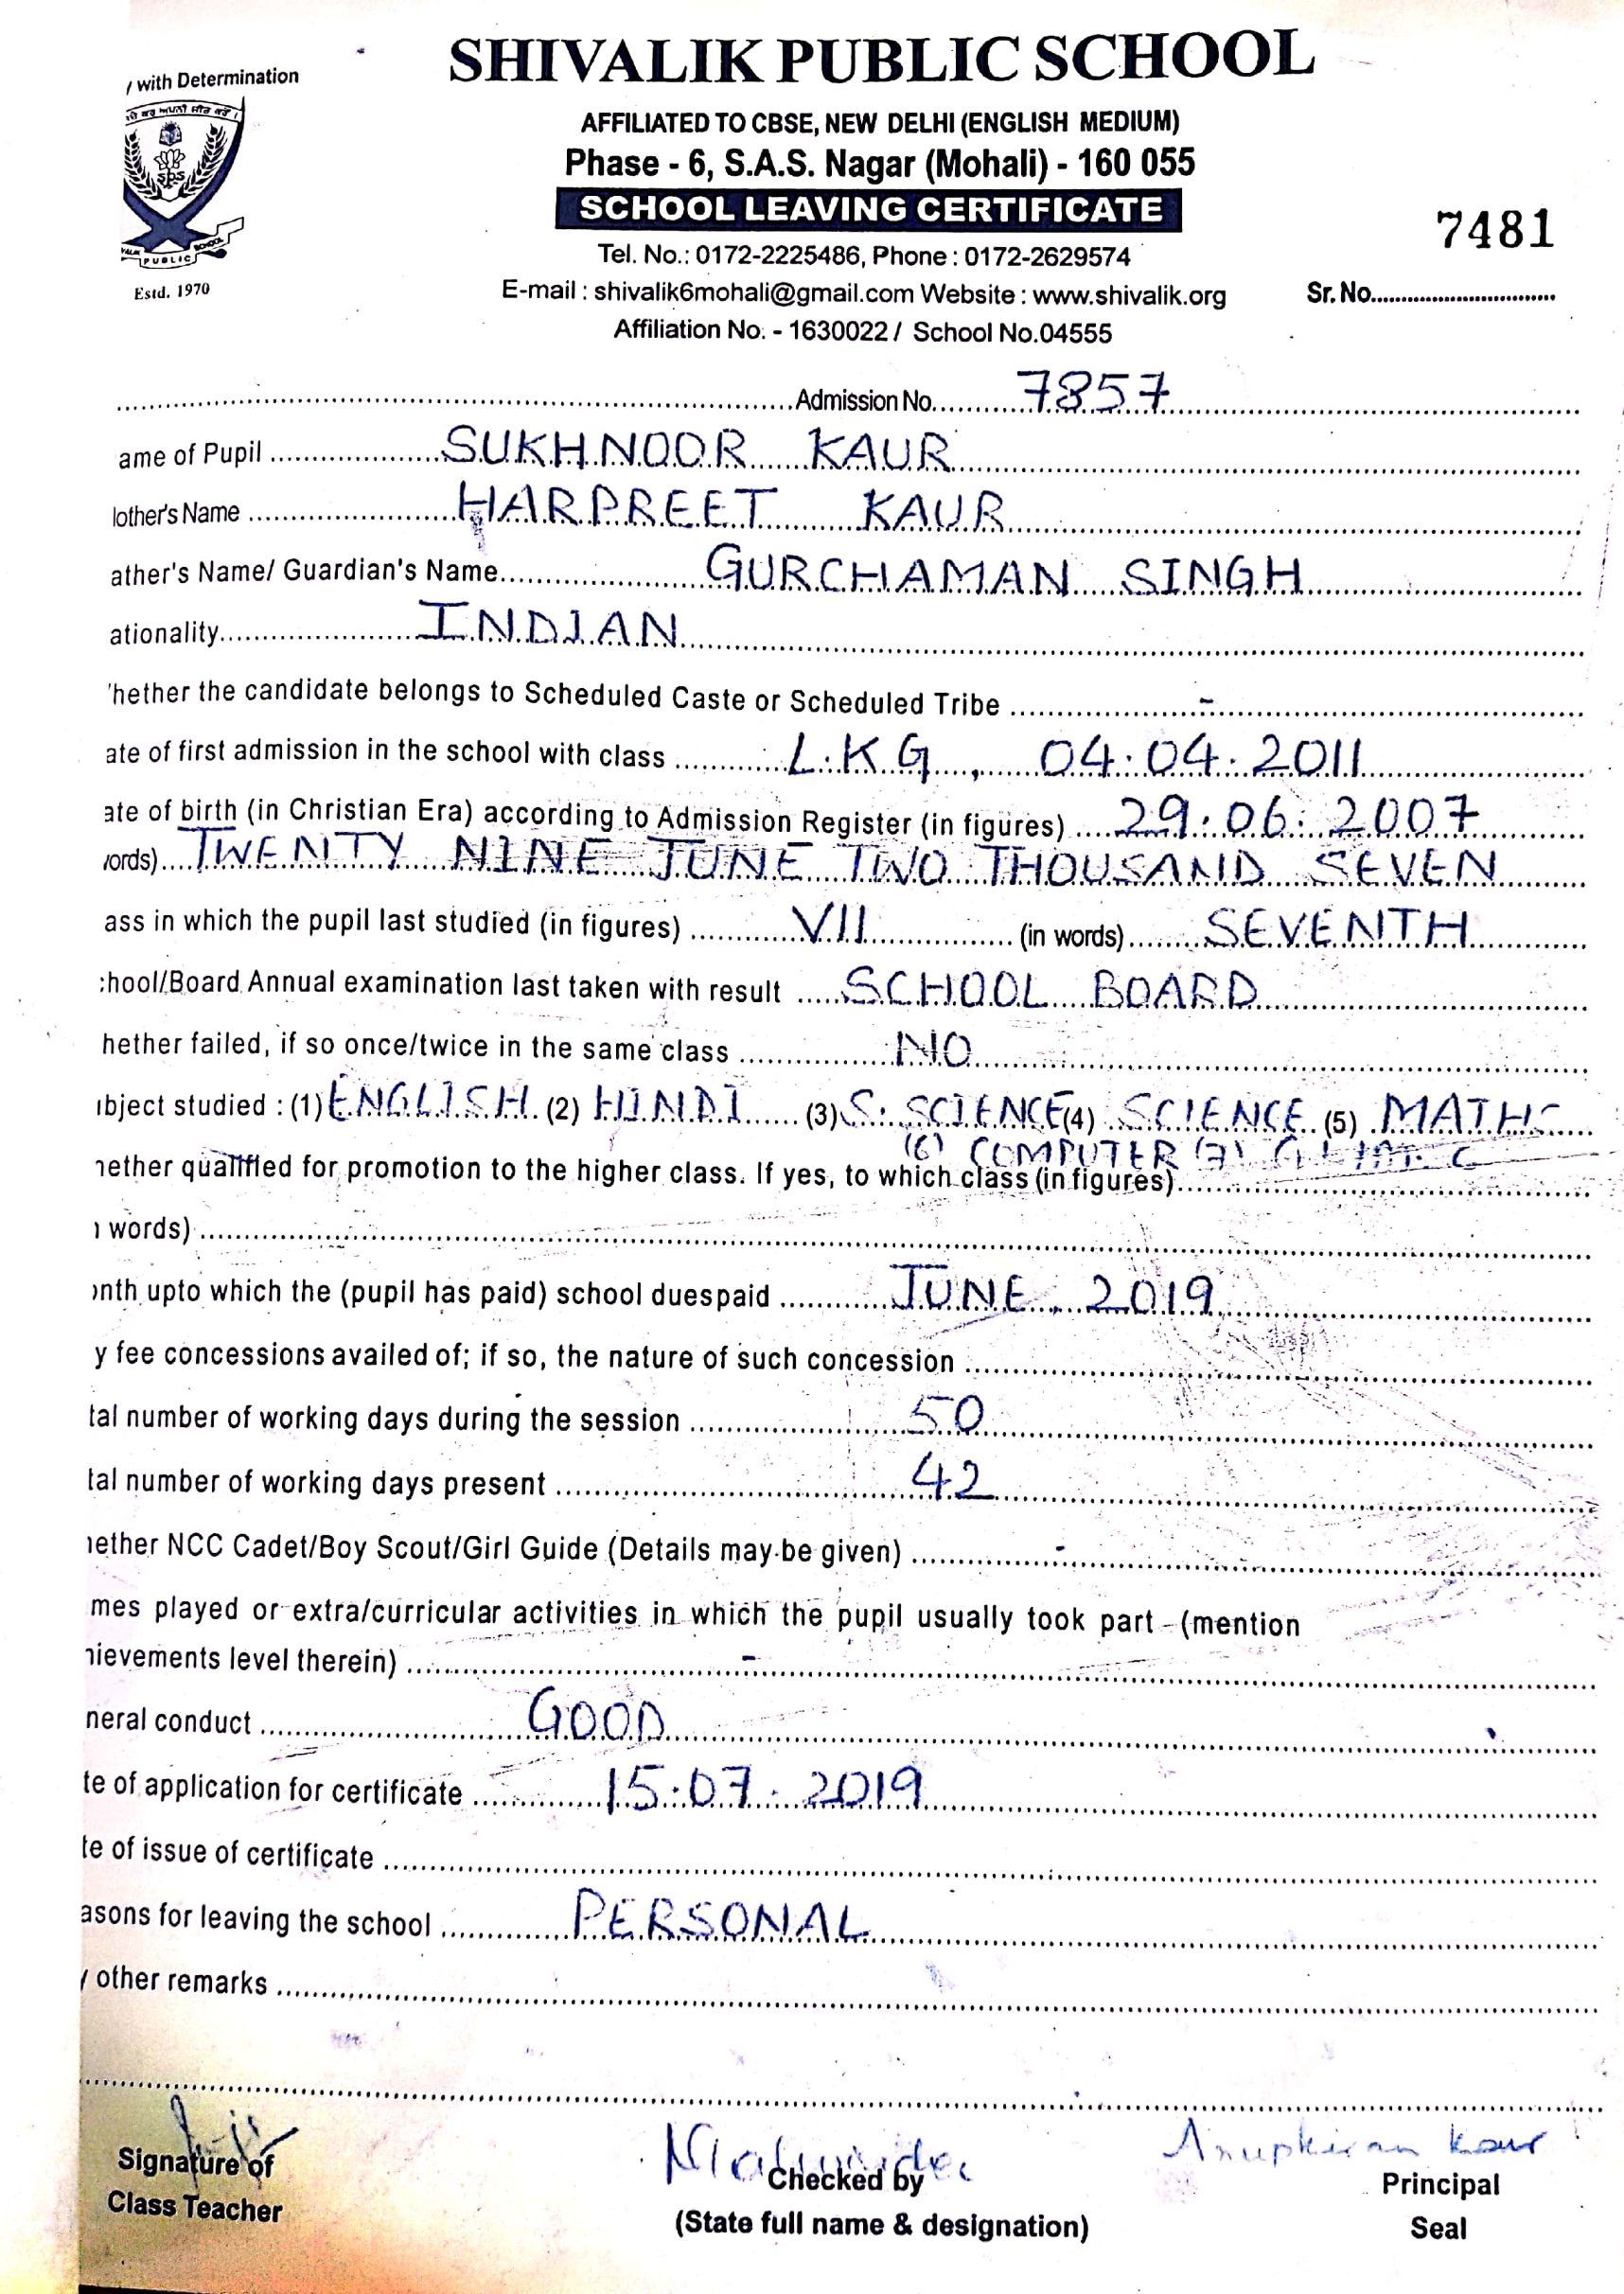 y with Determination
SHIVALIK PUBLIC SCHOOL
AFFILIATED TO CBSE, NEW DELHI (ENGLISH MEDIUM)
Phase - 6, S.A.S. Nagar (Mohali) - 160 055
SCHOOL LEAVING CERTIFICATE
7481
Tel. No.: 0172-2225486, Phone : 0172-2629574
SPS
SCHOOL
PUBLIC
Estd. 1970
E-mail : shivalik6mohali@gmail.com Website : www.shivalik.org
Sr. No..............................
Affiliation No. - 1630022 / School No.04555
Admission No. 7857
ame of Pupil SUKHNOOR KAUR
lother's Name HARPREET KAUR
ather's Name/ Guardian's Name GURCHAMAN SINGH
ationality INDIAN
hether the candidate belongs to Scheduled Caste or Scheduled Tribe -
ate of first admission in the school with class L.K.G, 04.04.2011
ate of birth (in Christian Era) according to Admission Register (in figures) 29.06.2007
ords) TWENTY NINE JUNE TWO THOUSAND SEVEN
ass in which the pupil last studied (in figures) VII (in words) SEVENTH
hool/Board Annual examination last taken with result SCHOOL BOARD
hether failed, if so once/twice in the same class NO
bject studied : (1) ENGLISH (2) HINDI (3) S. SCIENCE (4) SCIENCE (5) MATHS
(6) COMPUTER (7)
hether qualified for promotion to the higher class. If yes, to which class (in figures)
words)
onth upto which the (pupil has paid) school duespaid JUNE, 2019
y fee concessions availed of; if so, the nature of such concession
tal number of working days during the session 50
tal number of working days present 42
hether NCC Cadet/Boy Scout/Girl Guide (Details may be given) -
mes played or extra/curricular activities in which the pupil usually took part - (mention
hievements level therein) -
neral conduct GOOD
te of application for certificate 15.07.2019
te of issue of certificate
asons for leaving the school PERSONAL
y other remarks
Anupkiran Kaur
Signature of
Class Teacher
Checked by
(State full name & designation)
Principal
Seal